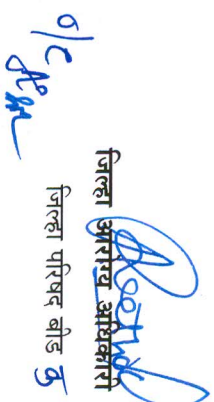 o/c
जिल्हा आरोग्य अधिकारी
जिल्हा परिषद बीड